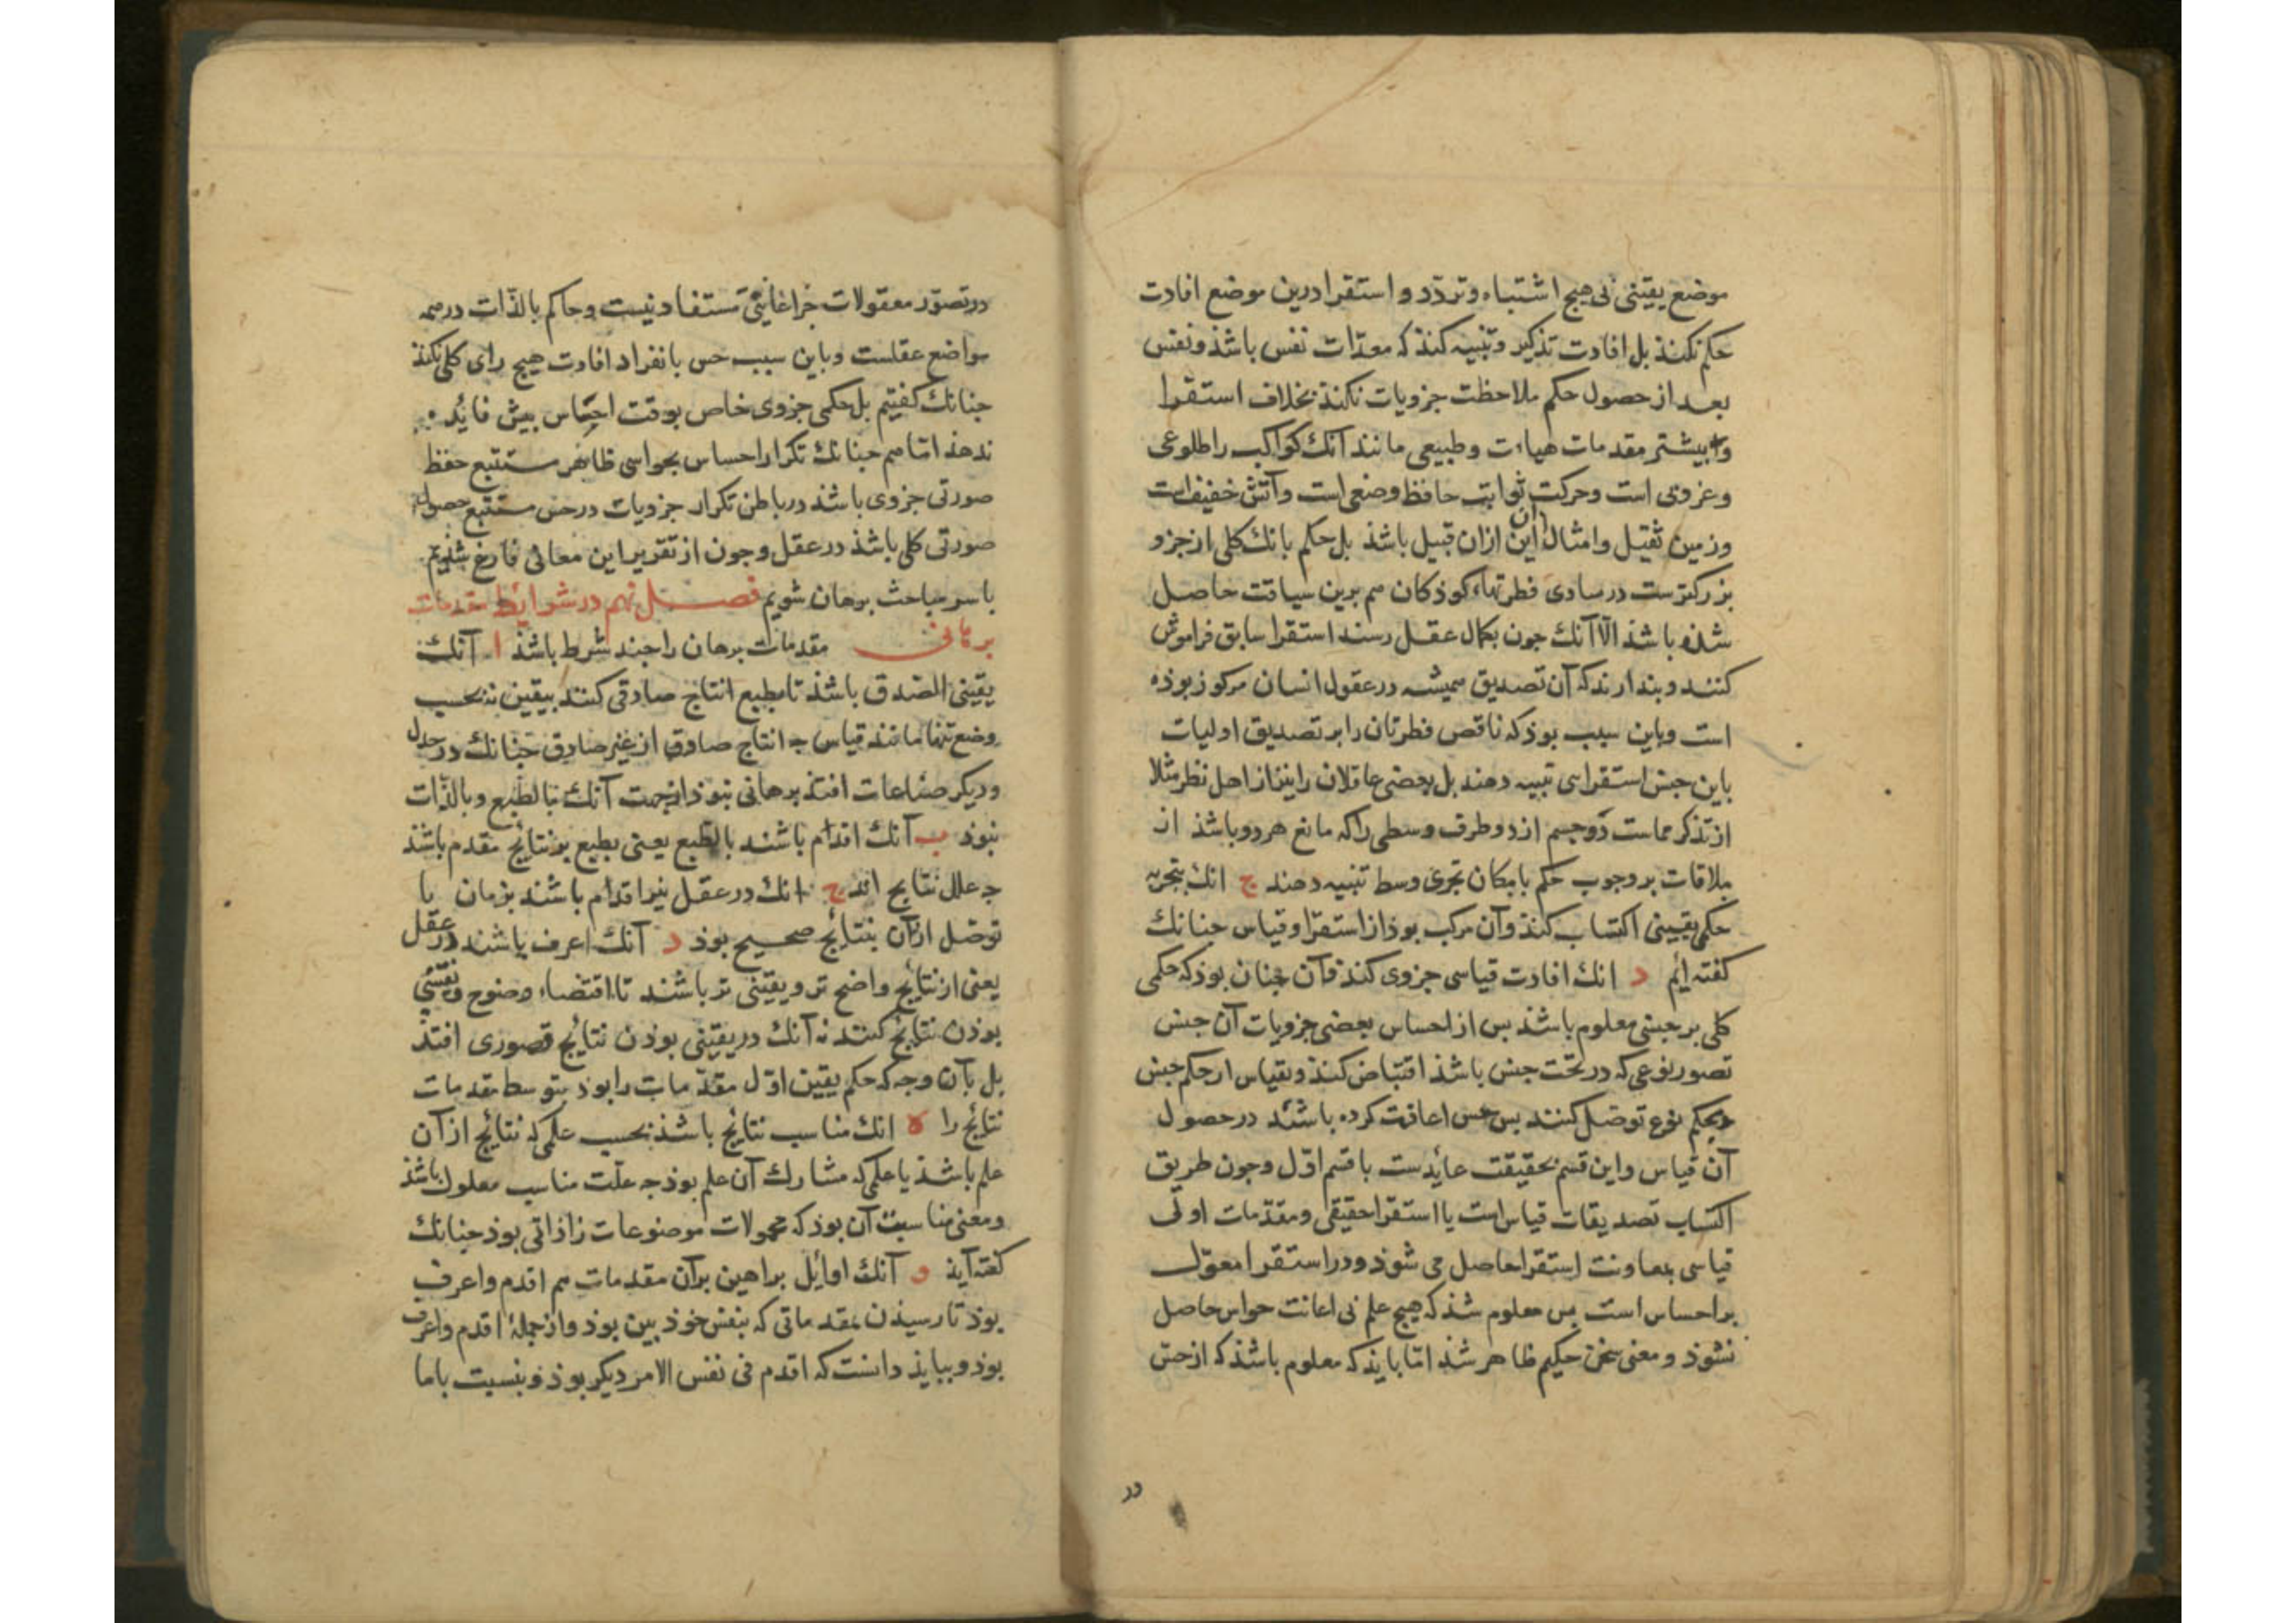 موضع یقینی بی هیچ اشتباه و تردّد و استقرا درین موضع افادت
حکم نکند بل افادت تذکیر و تنبیه کند که معدّات نفس باشذ و نفس
بعد از حصول حکم ملاحظت جزویات نکند بخلاف استقرا
و بیشتر مقدمات هیاءت و طبیعی مانند آنك کواکب را طلوعی
و غروبی است و حرکت ثوابت حافظ وضعی است و آتش خفیف است
و زمین ثقیل و امثال این ازان قبیل باشذ بل حکم بانك کلی از جزو
بزرکترست در مبادی فطرتهاء کوذکان هم برین سیاقت حاصل
شذه باشذ الّا آنك جون بکمال عقل رسند استقرا سابق فراموش
کنند و بندارند که آن تصدیق همیشه در عقول انسان مرکوز بوذه
است و باین سبب بوذ که ناقص فطرتان را بر تصدیق اولیات
باین جنس استقرای تنبیه دهند بل بعضی عاقلان را نیز از اهل نظر مثلا
از تذکر مماست دو جسم از دو طرف وسطی را که مانع هر دو باشذ از
ملاقات بر وجوب حکم بامکان تجزی وسط تنبیه دهند ج انك بتجربه
حکمی یقینی اکتساب کند و آن مرکب بوذ از استقرا و قیاس جنانك
کفته ایم د انك افادت قیاسی جزوی کند و آن جنان بوذ که حکمی
کلی بر جنسی معلوم باشذ بس از احساس بعضی جزویات آن جنس
تصور نوعی که در تحت جنس باشذ اقتباض کنذ و بقیاس از حکم جنس
بحکم نوع توصل کنند بس حس اعانت کرده باشذ در حصول
آن قیاس و این قسم بحقیقت عایدست با قسم اوّل و جون طریق
اکتساب تصدیقات قیاس است یا استقرا حقیقی و مقدّمات اولی
قیاسی بمعاونت استقرا حاصل می شوذ و در استقرا معوّل
بر احساس است بس معلوم شذ که هیج علم بی اعانت حواس حاصل
نشوذ و معنی سخن حکیم ظاهر شذ امّا بایذ که معلوم باشذ که از حس
در
در تصوّر معقولات جز اعانتی مستفاد نیست و حاکم بالذّات در همه
مواضع عقلست و باین سبب حس بانفراد افادت هیج رای کلی نکند
جنانك کفتیم بل حکمی جزوی خاص بوقت احساس بیش فایده
ندهذ امّا هم جنانك تکرار احساس بحواسی ظاهر مستتبع حفظ
صورتی جزوی باشذ در باطن تکرار جزویات در حس مستتبع حصول
صورتی کلی باشذ در عقل و جون از تقریر این معانی فارغ شذیم
با سر مباحث برهان شویم فصل نهم در شرایط مقدمات
برهانی مقدمات برهان را جند شرط باشذ ا آنك
یقینی الصّدق باشذ تا بطبع انتاج صادقی کنند بیقین نه بحسب
وضع تنها مانند قیاس جه انتاج صادق از غیر صادق جنانك در جدل
و دیکر صناعات افتذ برهانی نبوذ از جهت آنك بالطبع و بالذّات
نبوذ ب آنك اقدام باشند بالطّبع یعنی بطبع بر نتایج مقدم باشذ
جه علل نتایج اند ج انك در عقل نیز اقدام باشند بزمان تا
توصّل ازآن بنتایج صحیح بوذ د آنك اعرف باشند در عقل
یعنی از نتایج واضح تر و یقینی تر باشند تا اقتضاء وضوح و یقینی
بوذن نتایج کنند نه آنك در یقینی بوذن نتایج قصوری افتذ
بل بآن وجه که حکم یقین اوّل مقدّمات را بوذ بتوسط مقدمات
نتایج را ه انك مناسب نتایج باشذ بحسب علمی که نتایج ازآن
علم باشذ یا علمی که مشارك آن علم بوذ جه علّت مناسب معلول باشذ
و معنی مناسبت آن بوذ که محمولات موضوعات را ذاتی بوذ جنانك
کفته آیذ و آنك اوایل براهین برآن مقدمات هم اقدم و اعرف
بوذ تا رسیذن بمقدماتی که بنفس خوذ بین بوذ و از جملهٔ اقدم و اعرف
بوذ و ببایذ دانست که اقدم فی نفس الامر دیکر بوذ و بنسبت با ما